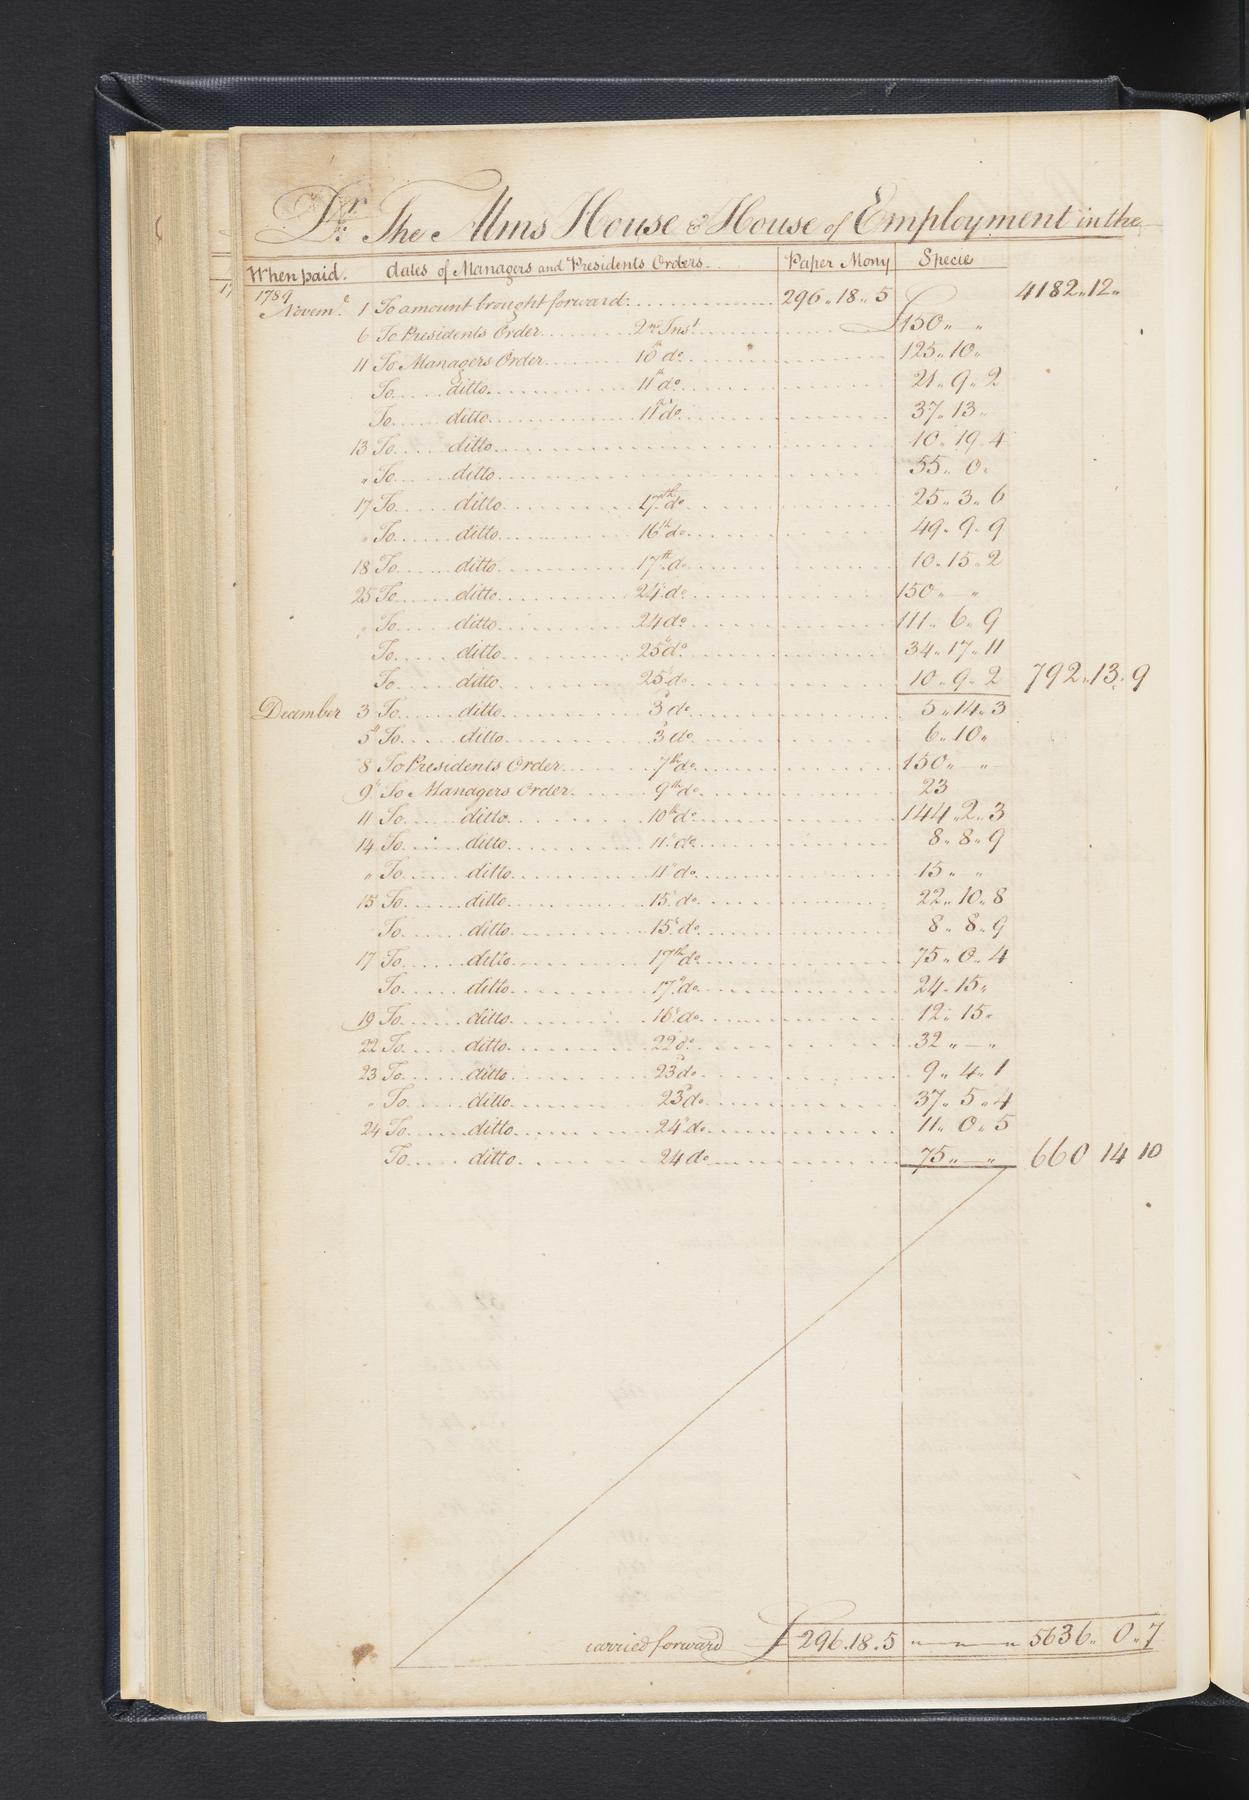 Dr. The Alms House & House of Employment in the
When paid. dates of Managers and Presidents Orders. Paper Mony Specie
1789
Novemr. 1 To amount brought forward. 296..18..5 4182..12..
6 To Presidents Order 2nd Inst £150.. ..
11 To Managers Order 10th do 125..10..
To ditto 11th do 21..9..2
To ditto 11th do 37..13..
13 To ditto 10..19..4
" To ditto 55..0..
17 To ditto 17th do 25..3..6
" To ditto 16th do 49..9..9
18 To ditto 17th do 10..15..2
25 To ditto 24th do 150.. — ..
" To ditto 24 do 111..6..9
To ditto 25th do 34..17..11
To ditto 25th do 10..9..2 792..13..9
December 3 To ditto 3d do 5..14..3
5th To ditto 3d do 6..10..
8 To Presidents Order 7th do 150.. — ..
9th To Managers Order 9th do 23
11 To ditto 10th do 144..2..3
14 To ditto 11th do 8..8..9
" To ditto 11th do 15.. ..
15 To ditto 15th do 22..10..8
To ditto 15th do 8..8..9
17 To ditto 17th do 75..0..4
To ditto 17th do 24..15..
19 To ditto 16th do 12..15..
22 To ditto 22d do 32.. — ..
23 To ditto 23d do 9..4..1
" To ditto 23d do 37..5..4
24 To ditto 24th do 11..0..5
To ditto 24 do 75.. — .. 660 14 10
carried forward £296.18.5 " — " — " 5636..0..7